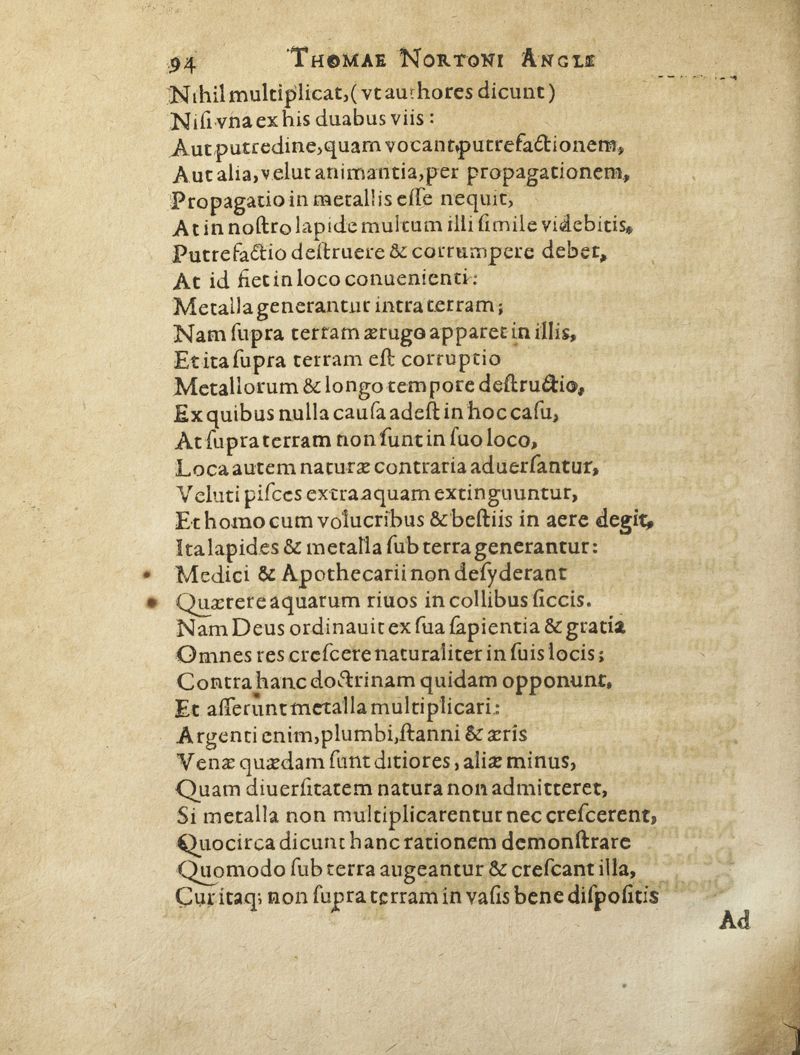 94 THOMAE NORTONI ANGLI
Nihil multiplicat, (vt authores dicunt)
Niſi vna ex his duabus viis:
Aut putredine, quam vocant putrefactionem,
Aut alia, velut animantia, per propagationem,
Propagatio in metallis eſſe nequit,
At in noſtro lapide multum illi ſimile videbitis,
Putrefactio deſtruere & corrumpere debet,
At id fiet in loco conuenienti:
Metalla generantur intra terram;
Nam ſupra terram ærugo apparet in illis,
Et ita ſupra terram eſt corruptio
Metallorum & longo tempore deſtructio,
Ex quibus nulla cauſa adeſt in hoc caſu,
At ſupra terram non ſunt in ſuo loco,
Loca autem naturæ contraria aduerſantur,
Veluti piſces extra aquam extinguuntur,
Et homo cum volucribus & beſtiis in aere degit,
Ita lapides & metalla ſub terra generantur:
Medici & Apothecarii non deſyderant
Quærere aquarum riuos in collibus ſiccis.
Nam Deus ordinauit ex ſua ſapientia & gratia
Omnes res creſcere naturaliter in ſuis locis;
Contra hanc doctrinam quidam opponunt,
Et aſſerunt metalla multiplicari:
Argenti enim, plumbi, ſtanni & æris
Venæ quædam ſunt ditiores, aliæ minus,
Quam diuerſitatem natura non admitteret,
Si metalla non multiplicarentur nec creſcerent,
Quocirca dicunt hanc rationem demonſtrare
Quomodo ſub terra augeantur & creſcant illa,
Cur itaq; non ſupra terram in vaſis bene diſpoſitis
Ad